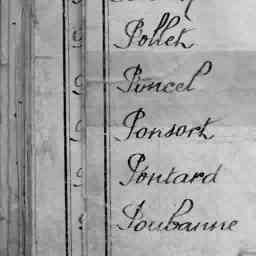 Pollet
Poncel
Ponsort
Pontard
Poubanne